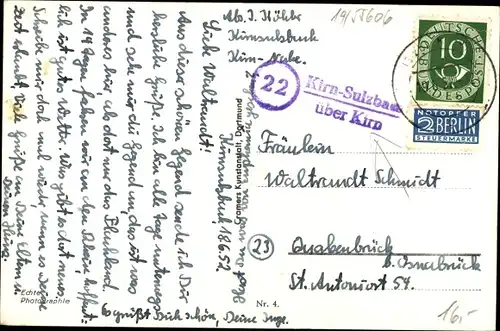 Abs. I. Köhler
Kirnsulzbach
Kirn-Nahe.
19/55606
DEUTSCHE
BUNDESPOST
10
NOTOPFER
2 BERLIN
STEUERMARKE
22
Kirn-Sulzbach
über Kirn
Fräulein
Waltraudt Schmidt
23
Quakenbrück
b. Osnabrück
St. Antoniort 54.
Nr. 4.
16,-
Cramers Kunstanstalt, Dortmund
Echte
Photographie
Kirnsulzbach 18.6.52.
Liebe Waltraudt!
Aus dieser schönen Gegend sende ich Dir
herzliche Grüße. Ich bin alle Tage unterwegs
und sehe mir die Gegend an, das ist was
anders hier als dort nur das Flachland.
In 14 Tagen fahren wir an den Rhein, hoffent-
lich ist gutes Wetter. Was gibt es dort neues,
Schreibe mir doch mal wieder, wenn es Deine
Zeit erlaubt. Viele Grüße an Deine Eltern u.
Deinen Heinz.
Es grüßt Dich schön, Deine Inge.